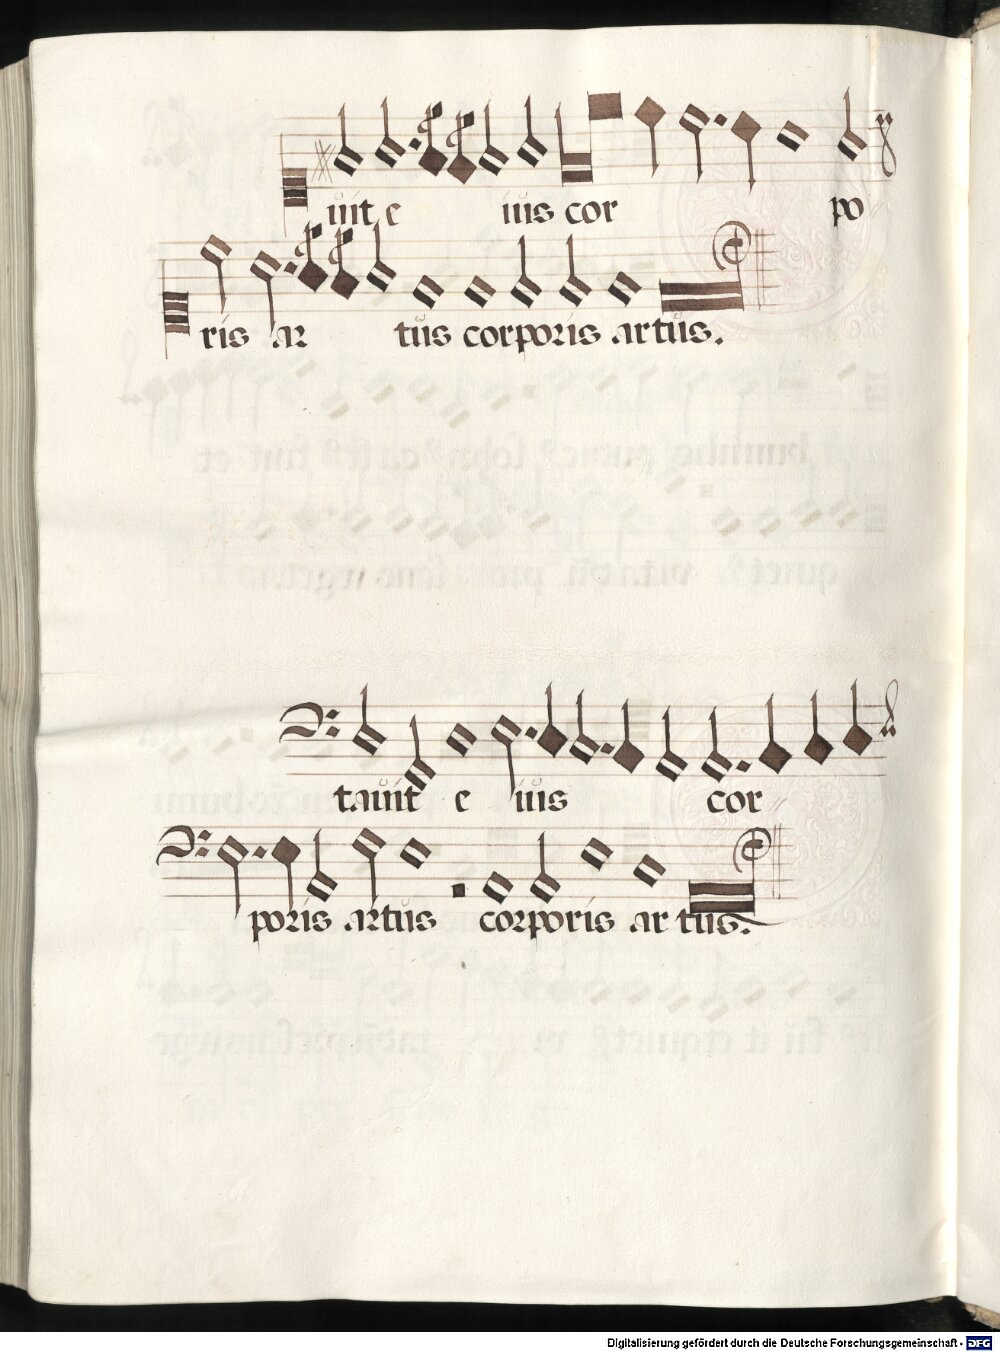 uit e ius cor po
ris ar tus corporis artus.
tauit e ius cor
poris artus corporis ar tus.
Digitalisierung gefördert durch die Deutsche Forschungsgemeinschaft - DFG